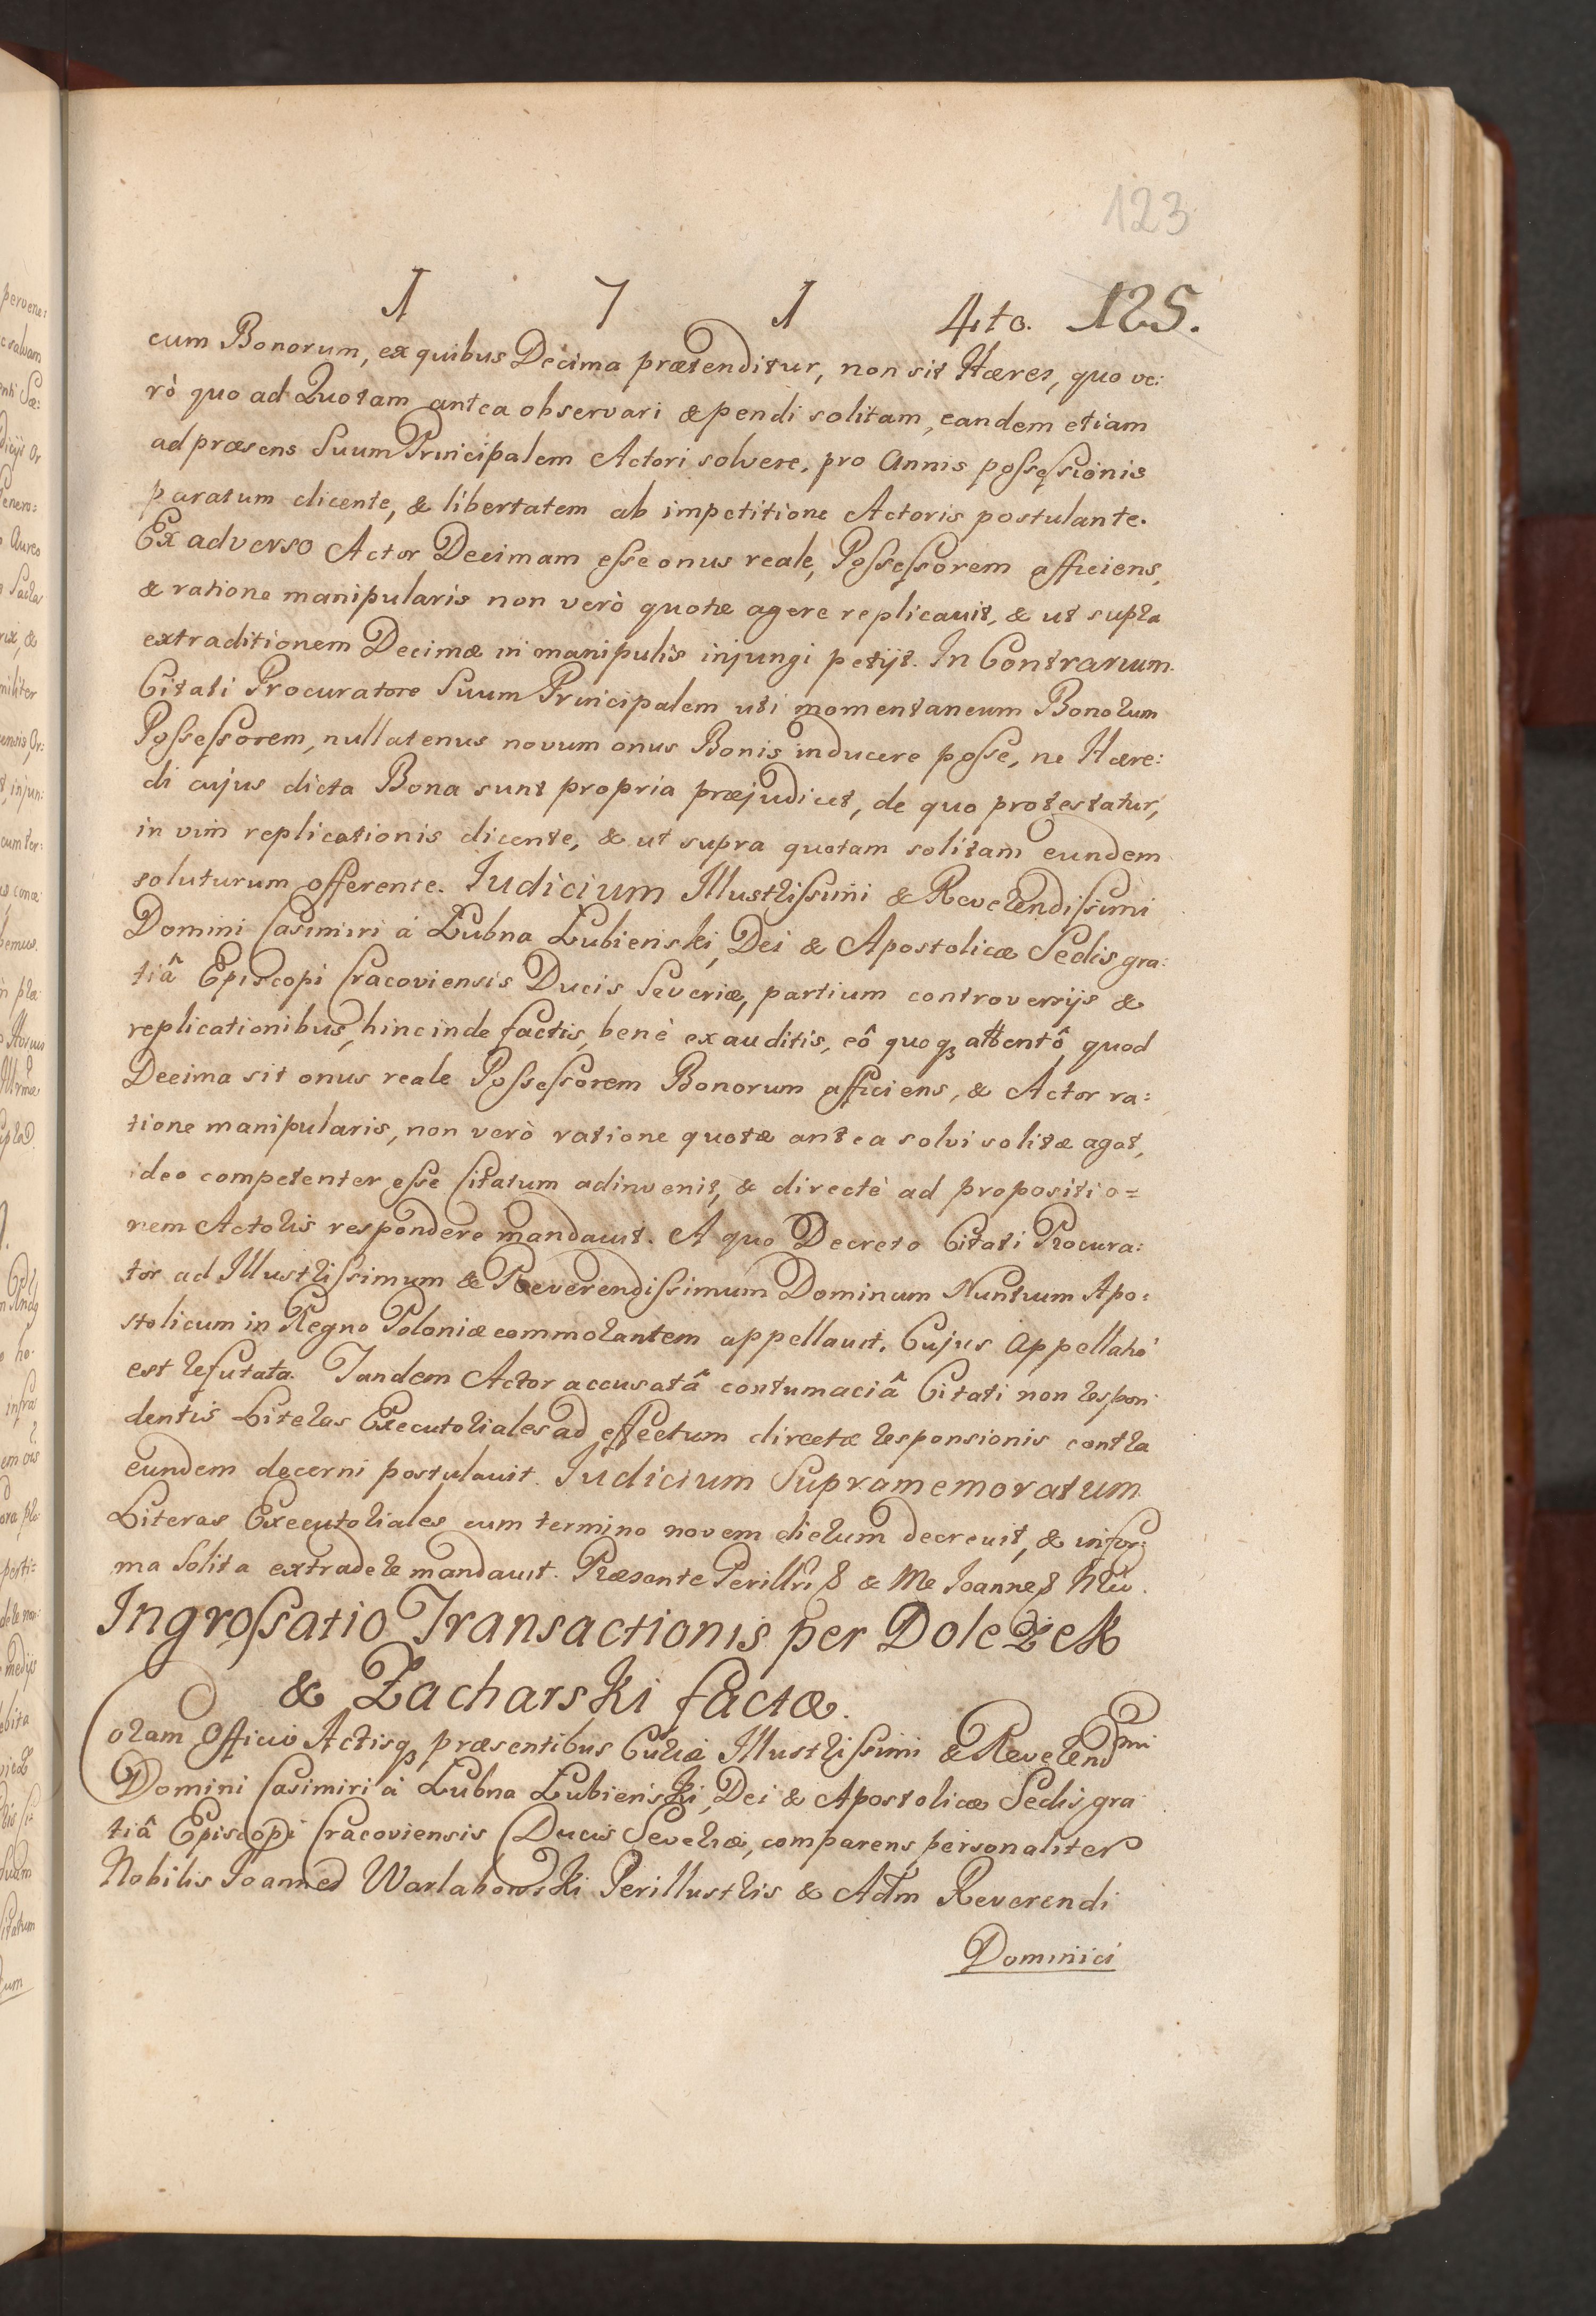 123
1 7 1 4to. 125.
cum Bonorum, ex quibus Decima prætenditur, non sit Hæres, quo ve:
rò quo ad Quotam antea observari & pendi solitam, eandem etiam
ad præsens Suum Principalem Actori solvere, pro Annis possessionis
paratum dicente, & libertatem ab impetitione Actoris postulante.
Ex adverso Actor Decimam esse onus reale, Possessorem afficiens,
& ratione manipularis non verò quotæ agere replicavit, & ut supra
extraditionem Decimæ in manipulis injungi petijt. In Contrarium
Citati Procuratore Suum Principalem uti momentaneum Bonorum
Possessorem, nullatenus novum onus Bonis inducere posse, ne Hære:
di cujus dicta Bona sunt propria præjudicet, de quo protestatur,
in vim replicationis dicente, & ut supra quotam solitam eundem
soluturum offerente. Iudicium Illustrissimi & Reverendissimi
Domini Casimiri à Łubna Łubieński, Dei & Apostolicæ Sedis gra:
tiâ Episcopi Cracoviensis Ducis Severiæ, partium controversijs &
replicationibus, hincinde factis, benè exauditis, eô quoq3 attentô, quod
Decima sit onus reale Possessorem Bonorum afficiens, & Actor ra:
tione manipularis, non verò ratione quotæ antea solvi solitæ agat,
ideo competenter esse Citatum adinvenit, & directè ad propositio=
nem Actoris respondere mandavit. A quo Decreto Citati Procura:
tor ad Illustrissimum & Reverendissimum Dominum Nuntium Apo:
stolicum in Regno Poloniæ commorantem appellavit. Cujus Appellatio
est refutata. Tandem Actor accusatâ contumaciâ Citati non respon
dentis Literas Executoriales ad effectum directæ responsionis contra
eundem decerni postulavit. Iudicium Supramemoratum
Literas Executoriales cum termino novem dierum decrevit, & in for:
ma Solita extradere mandavit. Præsente Perillri & Me Ioanne
Ingrossatio Transactionis per Doleżek
& Zacharski factæ.
Coram Officio Actisq3 præsentibus Curiæ Illustrissimi & Reverendmi
Domini Casimiri à Łubna Łubieński, Dei & Apostolicæ Sedis gra
tiâ Episcopi Cracoviensis Ducis Severiæ, comparens personaliter
Nobilis Ioannes Warlahowski Perillustris & Adm Reverendi
Dominici